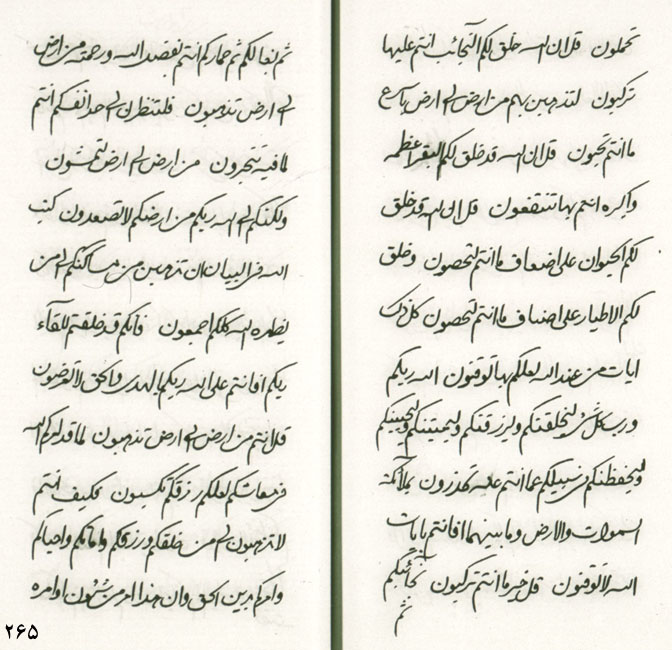 تحملون قل ان الله خلق لكم النجائب انتم عليها
تركبون لتذهبن بهم من ارض الى ارض باسرع
ما انتم تحبون قل ان الله قد خلق لكم البقر اعظمه
واكره انتم بها تنتفعون قل ان الله قد خلق
لكم الحيوان على اضعاف ما انتم لتحصون وخلق
لكم الاطيار على اضعاف ما انتم لتحصون كل ذلك
ايات من عند الله لعلكم بها توقنون الله ربكم
ورب كل شئ ليخلقنكم وليرزقنكم وليميتنكم وليحيينكم
وليحفظنكم في سبيلكم عما انتم عليه تحذرون بملائكة
السموات والارض وما بينهما افانتم بايات
الله لا توقنون قل خير ما انتم تركبون نجائبكم
ثم
ثم بغالكم ثم حماركم انتم بفضل الله ورحمته من ارض
الى ارض تذهبون فلتنظرن الى حد انفسكم انتم
لما فيه تتجرون من ارض الى ارض لتمشون
ولكنكم الى الله ربكم من ارضكم لا تصعدون كتب
الله في البيان ان تذهبن من مساكنكم الى من
يظهره الله كلكم اجمعون فانكم قد خلقتم للقاء
ربكم افانتم على الله ربكم بالهدى والحق لا تعرضون
قل انتم من ارض الى ارض تذهبون لما قدر لكم الله
في معاشكم لعلكم رزقكم تكسبون فكيف انتم
لا تذهبون الى من خلقكم ورزقكم واماتكم واحياكم
وامركم بدين الحق وان هذا امر من شئون اوامره
۲۶۵